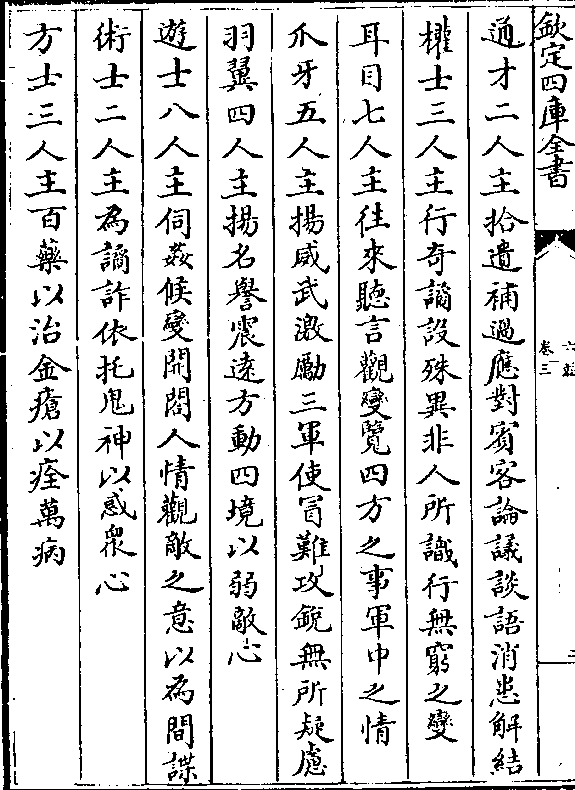 欽定四庫全書
六韜
卷三
通才二人主拾遺補過應對賓客論議談語消患解結
權士三人主行奇譎設殊異非人所識行無窮之變
耳目七人主往來聽言觀變覽四方之事軍中之情
爪牙五人主揚威武激勵三軍使冐難攻銳無所疑慮
羽翼四人主揚名譽震遠方動四境以弱敵心
遊士八人主伺姦候變開闔人情觀敵之意以為間諜
術士二人主為譎詐依托鬼神以惑衆心
方士三人主百藥以治金瘡以痊萬病